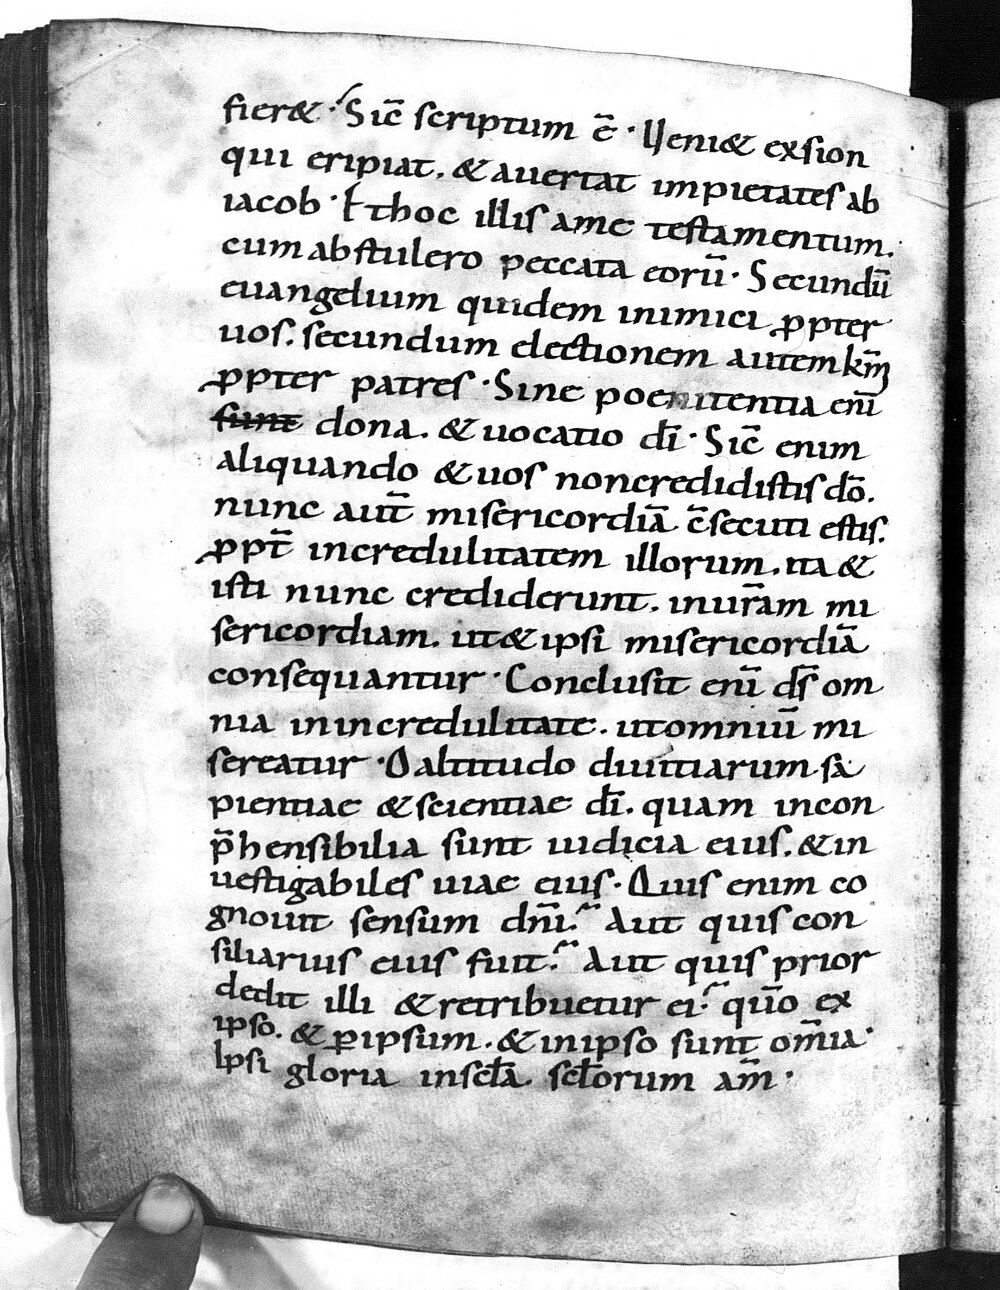 fier& · Sic̄ scriptum ē · Ueni& exsion
qui eripiat. & auertat impietates ab
iacob · Ethoc illis ame testamentum.
cum abstulero peccata eorū · Secundū
euangelium quidem inimici ꝓpter
uos. secundum electionem autem km̄
ꝓpter patres · Sine poenitentia eni̅
sunt dona. & uocatio di̅ · Sic̄ enim
aliquando & uos noncredidistis dō.
nunc aut̄ misericordiā c̄secuti estis.
ꝓpt̄ incredulitatem illorum. ita &
isti nunc crediderunt. inur̄am mi
sericordiam. ut& ipsi misericordiā
consequantur · Conclusit eni̅ ds̄ om
nia inincredulitate. utomniū mi
sereatur · O altitudo diuitiarum sa
pientiae & scientiae di̅. quam incon
p̄hensibilia sunt iudicia eius. & in
uestigabiles uiae eius · Quis enim co
gnouit sensum dni̅. Aut quis con
siliarius eius fuit. Aut quis prior
dedit illi & retribuetur ei. qūo ex
ipso. & ꝑipsum. & inipso sunt om̄ia ·
Ipsi gloria insc̄la sc̄lorum am̄ ·